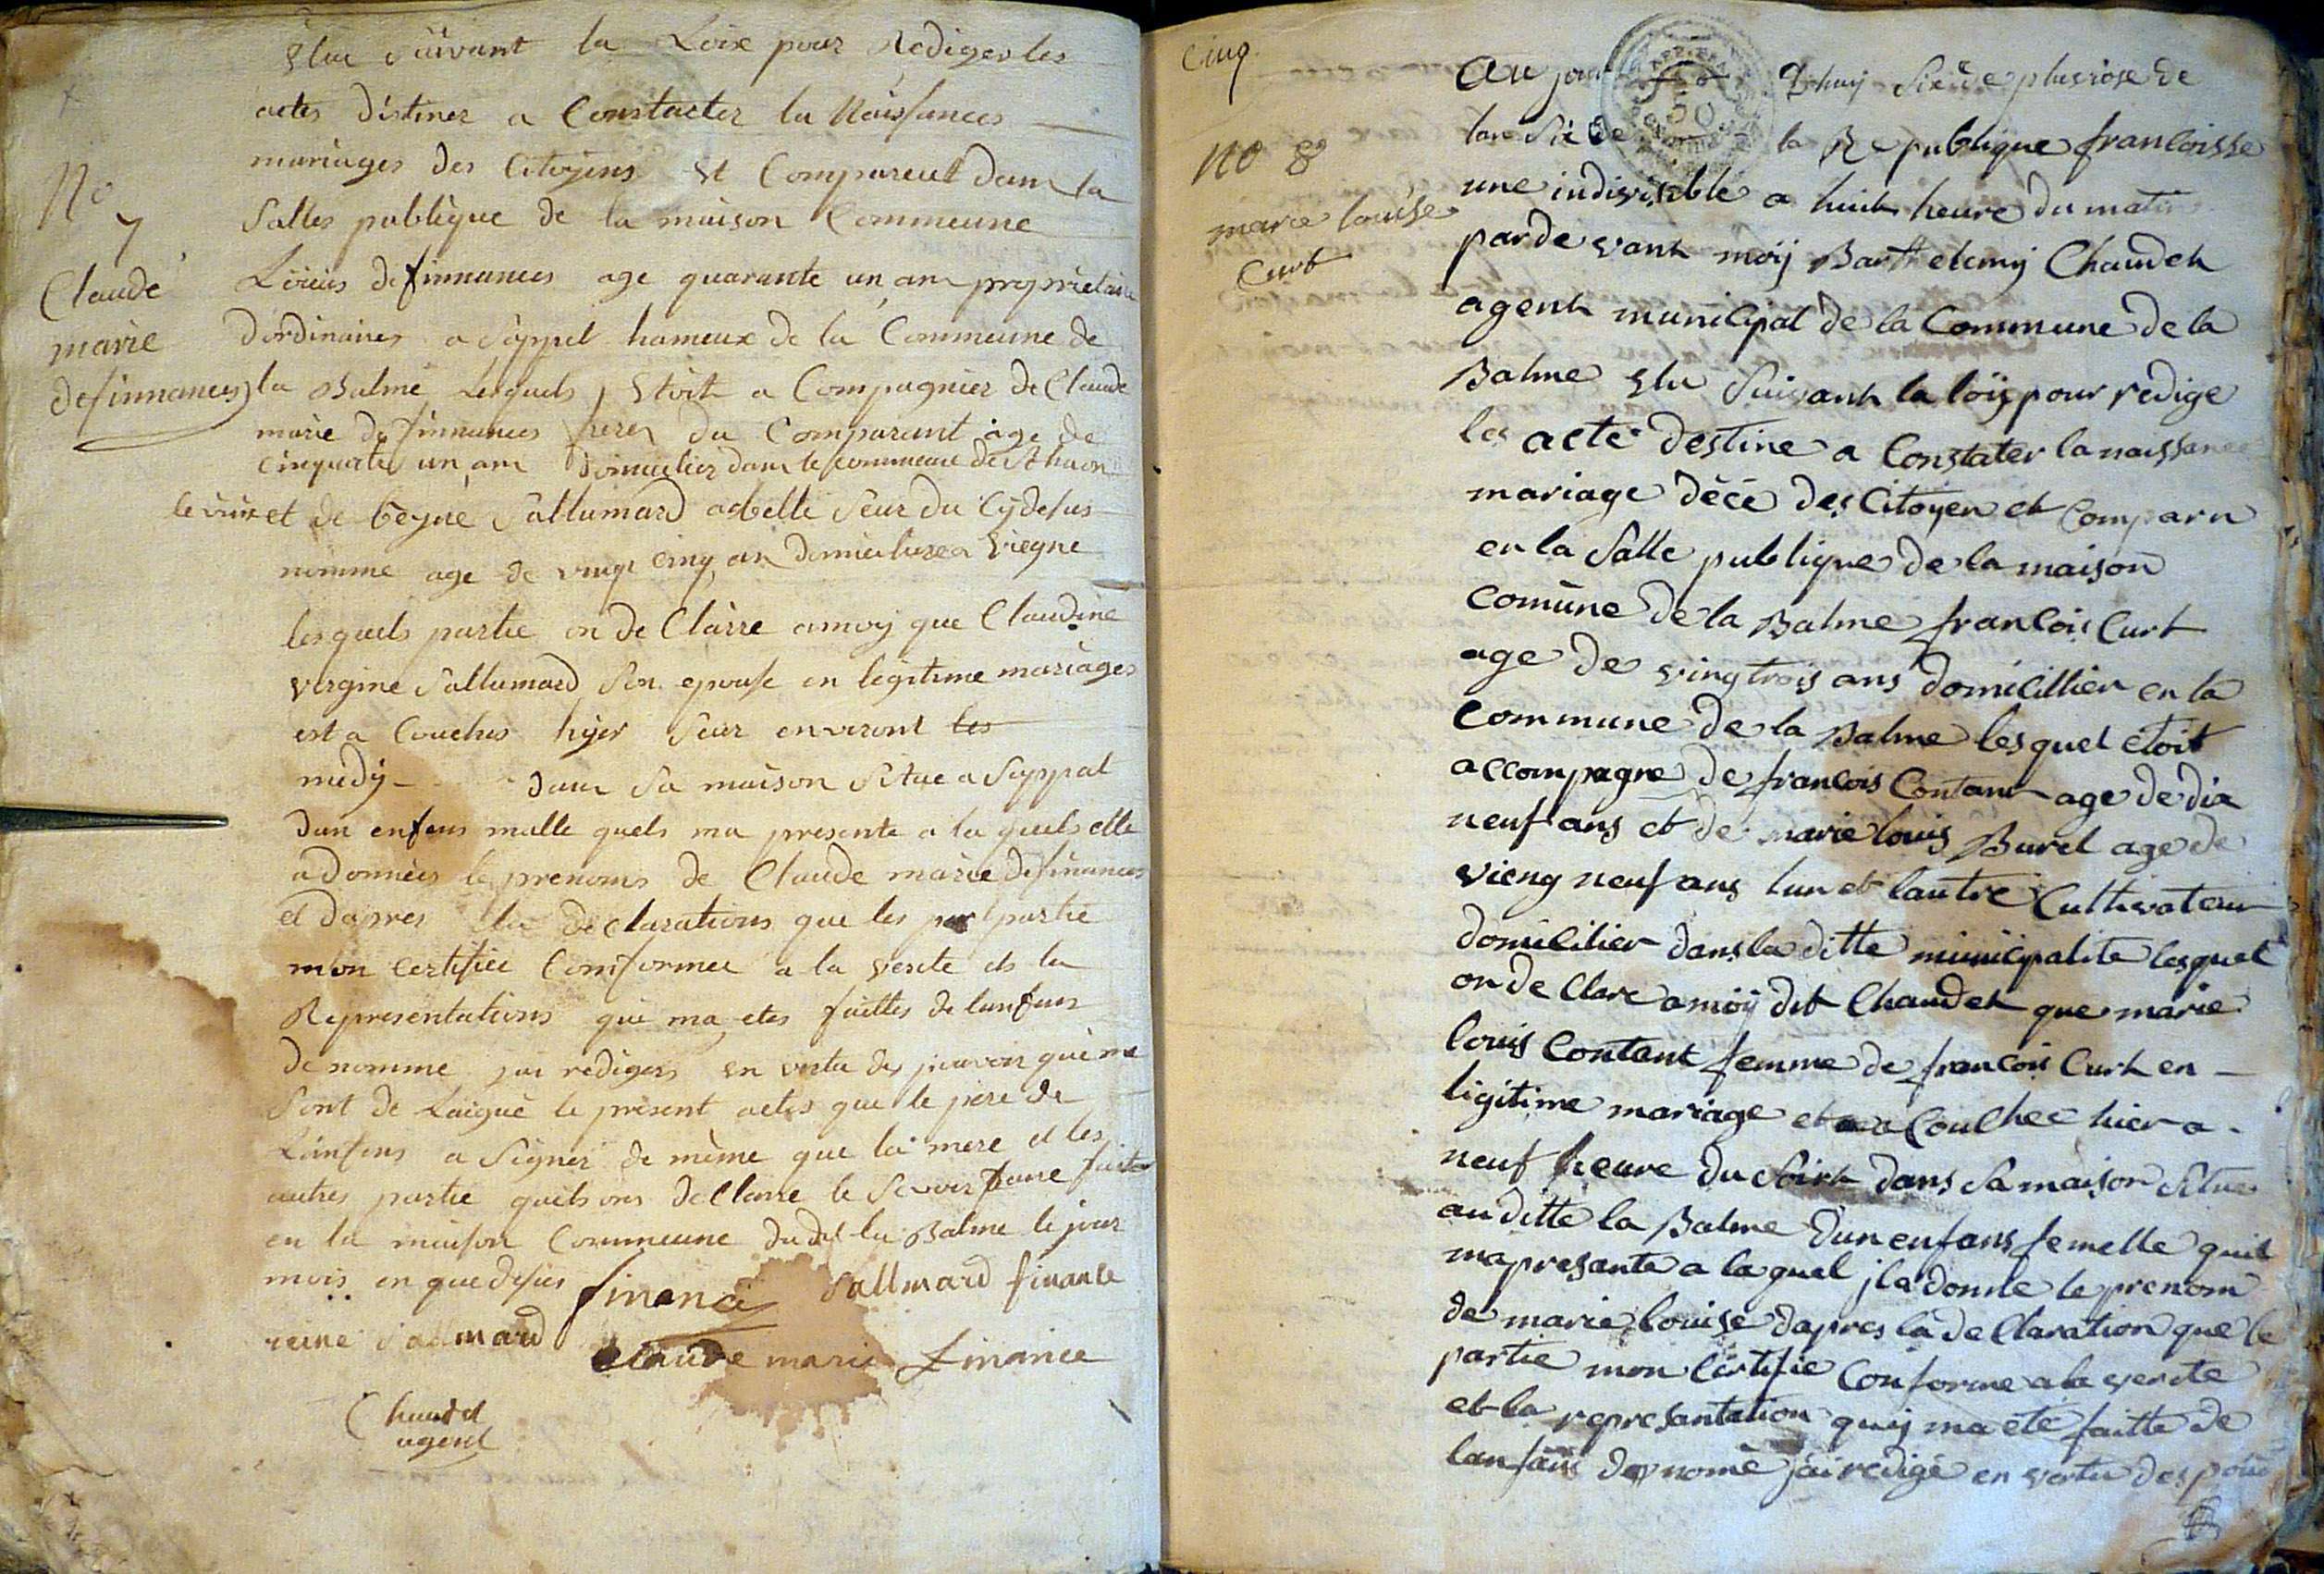 Elue suivant la Loix pour Rediger les
actes distiner a Constacter la Naissances
mariages des Citoyens Et Compareut dans la
Salles publique de la maison Commeune
Definnances age quarante un an proprietaire
Dordinaires a Sappel hameux de la Commeune de
la Balme Lesquels Etoit a Compagnier de Claude
marie definnances frere du Comparant age de
cinquate un an Domicilier dans le commeune de
et de Sallumard abelle Seur du Cydesus
nomme age de vingt cinq an
lesquels partie on de Clarre amoy que Claudine
vergine Sallumard Son epouse en legitime mariages
est a Couches hyer Seur environt les
medy - dans Sa maison Situe a Sappal
Dun enfans malle quels ma presente a la quels elle
a Données les prenoms de Claude marie definances
et Dapres la declarations que les partie
mon Certifiee Conformee a la verite et la
Representations qui ma etes faittes de lenfans
denomme jai rediges en vertu des pouvoir qui me
Sont de Laigué le present actes que le pere de
Lanfens a Signer de même que la mere et les
autres partie quels ons declarre le Savoir faire fait
en la maison Commeune dudit la Balme le jour
mois en que desus finance Sallmard finance
reine Sallmard Claude marie finance
Chaudet
agent
No
7
Claude
marie
definnances
Cinq
No 8
marie louise
Curt
50
Au jour Dhuy Six de pluviose de
lan Six de la Republique francoisse
une indivisible a huit heure du matin
pardevant moÿ Barthelemÿ Chaudet
agent municipal de la Commune de la
Balme elu Suivant la loÿ pour redige
les acte destine a Constater la naissance
mariage décé des Citoyen et Comparu
en la Salle publique de la maison
comune de la Balme francois Curt
age de vingtrois ans domicillier en la
Commune de la Balme lesquel etoit
accompagne de francois Contant age de dix
neuf ans et de marie louis Burel age de
vieng neuf ans lun et lautre Cultivateur
domicilier dans la ditte municipalite lesquel
on de Clare a moÿ dit Chaudet que marie
louis Contant femme de francois Curt en -
ligitime mariage et a Couchee hier a -
neuf heure du Soirt dans Sa maison Situe
au ditte la Balme dun enfans femelle quil
ma presante a laquel jl a donne le prenom
de marie louise dapres la de Claration que le
partie mon Certifie Conforme a la verite
et la represantation quÿ ma eté faitte de
lanfans denomé jai redigé en vertu des pouv